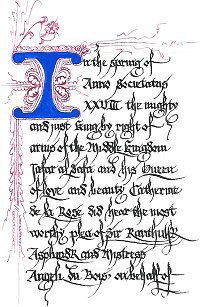 In the spring of
Anno Societatus
XXVIII the mighty
and just King by right of
arms of the Middle Kingdom
Jafar al Safa and his Queen
of love and beauty Catherine
de la Rose did hear the most
worthy plea of Sir
and Mistress
Angeli du Bois on behalf of